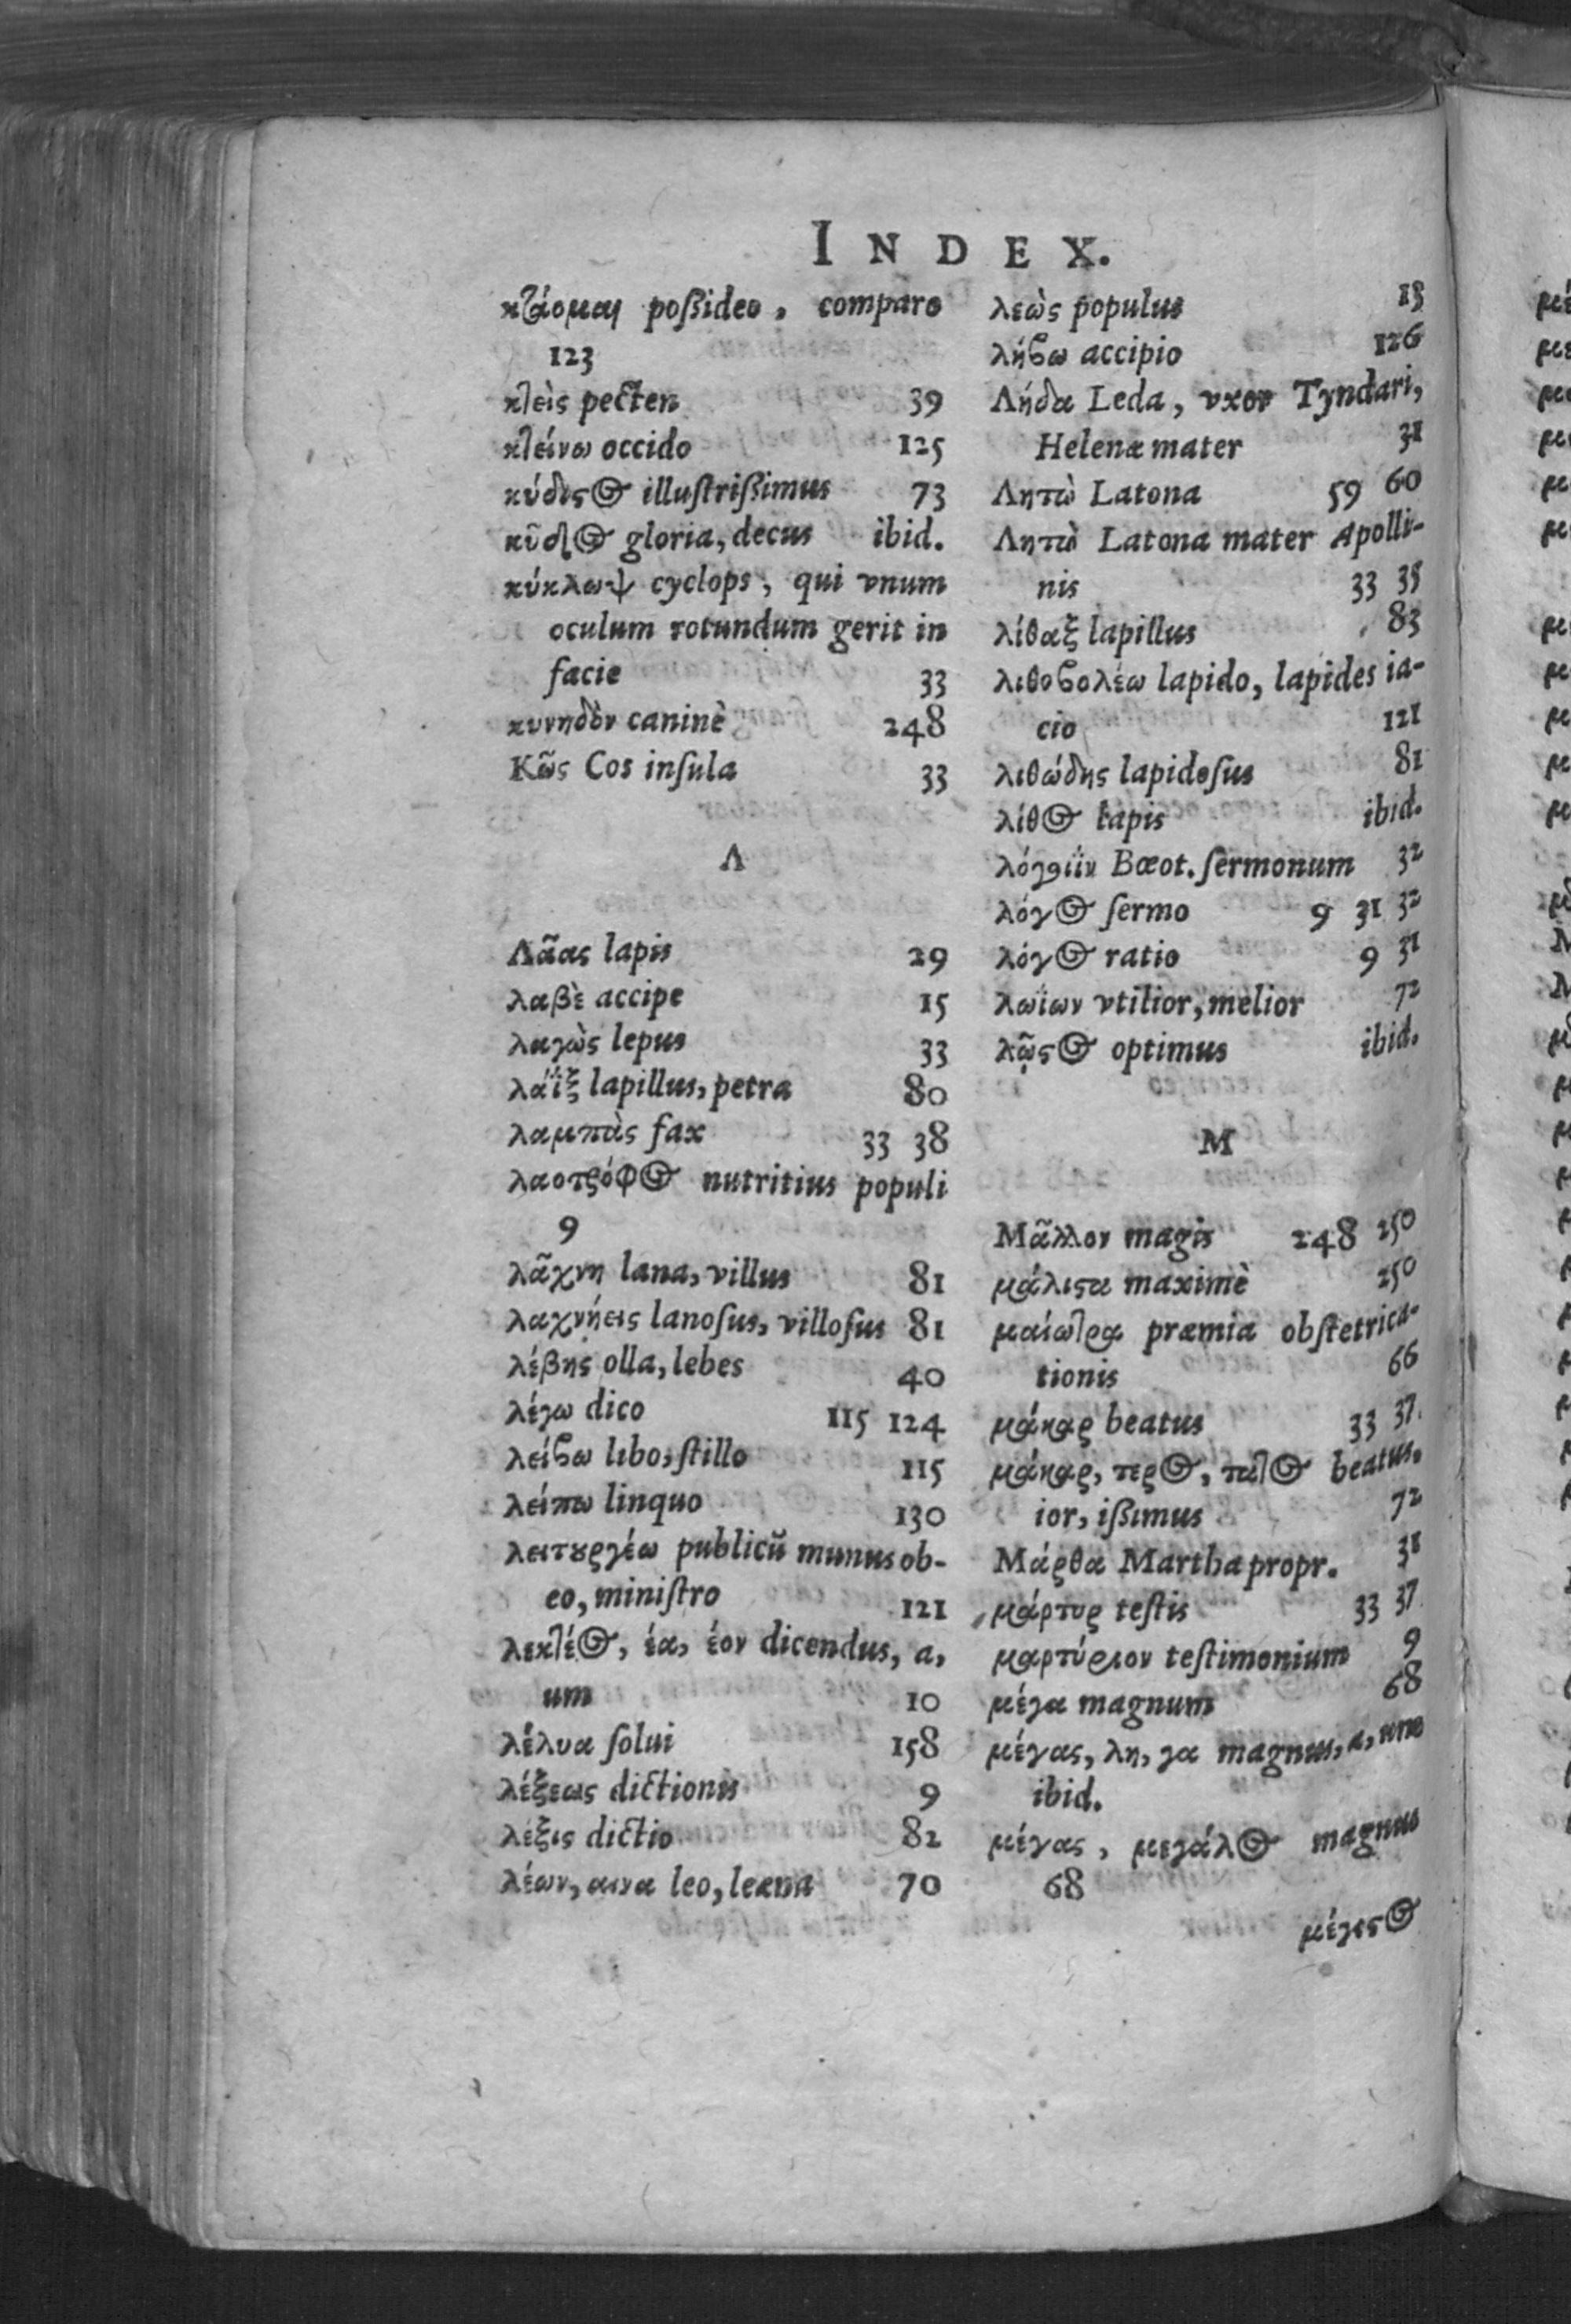 INDEX.
κτάομαι poßideo, comparo
123
κτεὶς pecten 39
κτείνω occido 125
κύδιςος illuſtrißimus 73
κῦδος gloria, decus ibid.
κύκλωψ cyclops, qui vnum
oculum rotundum gerit in
facie 33
κυνηδὸν caninè 248
Κῶς Cos inſula 33
Λ
Λᾶας lapis 29
λαβὲ accipe 15
λαγὼς lepus 33
λάϊξ lapillus, petra 80
λαμπὰς fax 33 38
λαοτρόφος nutritius populi
9
λᾶχνη lana, villus 81
λαχνήεις lanoſus, villoſus 81
λέβης olla, lebes 40
λέγω dico 115 124
λείϐω libo, ſtillo 115
λείπω linquo 130
λειτȣργέω publicū munus ob-
eo, miniſtro 121
λεκτέος, έα, έον dicendus, a,
um 10
λέλυα ſolui 158
λέξεως dictionis 9
λέξις dictio 82
λέων, αινα leo, leæna 70
λεὼς populus 13
λήϐω accipio 126
Λήδα Leda, vxor Tyndari,
Helenæ mater 31
Λητὼ Latona 59 60
Λητὼ Latona mater Apolli-
nis 33 35
λίθαξ lapillus 83
λιθοϐολέω lapido, lapides ia-
cio 121
λιθώδης lapidoſus 81
λίθος lapis ibid.
λόγοιϊν Bœot. ſermonum 32
λόγος ſermo 9 31 32
λόγος ratio 9 31
λωΐων vtilior, melior 72
λῷςος optimus ibid.
M
Μᾶλλον magis 248 250
μάλιςα maximè 250
μαίωτρα præmia obſtetrica-
tionis 66
μάκαρ beatus 33 37
μάκαρ, τερος, τατος beatus,
ior, ißimus 72
Μάρθα Martha propr. 31
μάρτυρ teſtis 33 37
μαρτύριον teſtimonium 9
μέγα magnum 68
μέγας, λη, γα magnus, a, um
ibid.
μέγας, μεγάλος magnus
68
μέγιςος